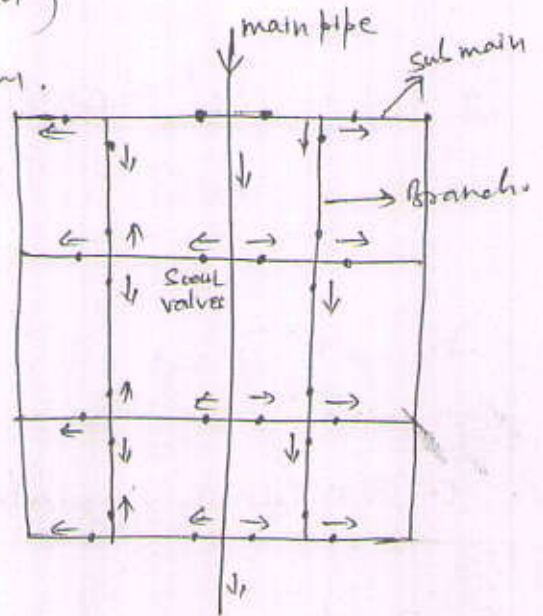 main pipe
sub main
m.
Branch.
Scour
valves